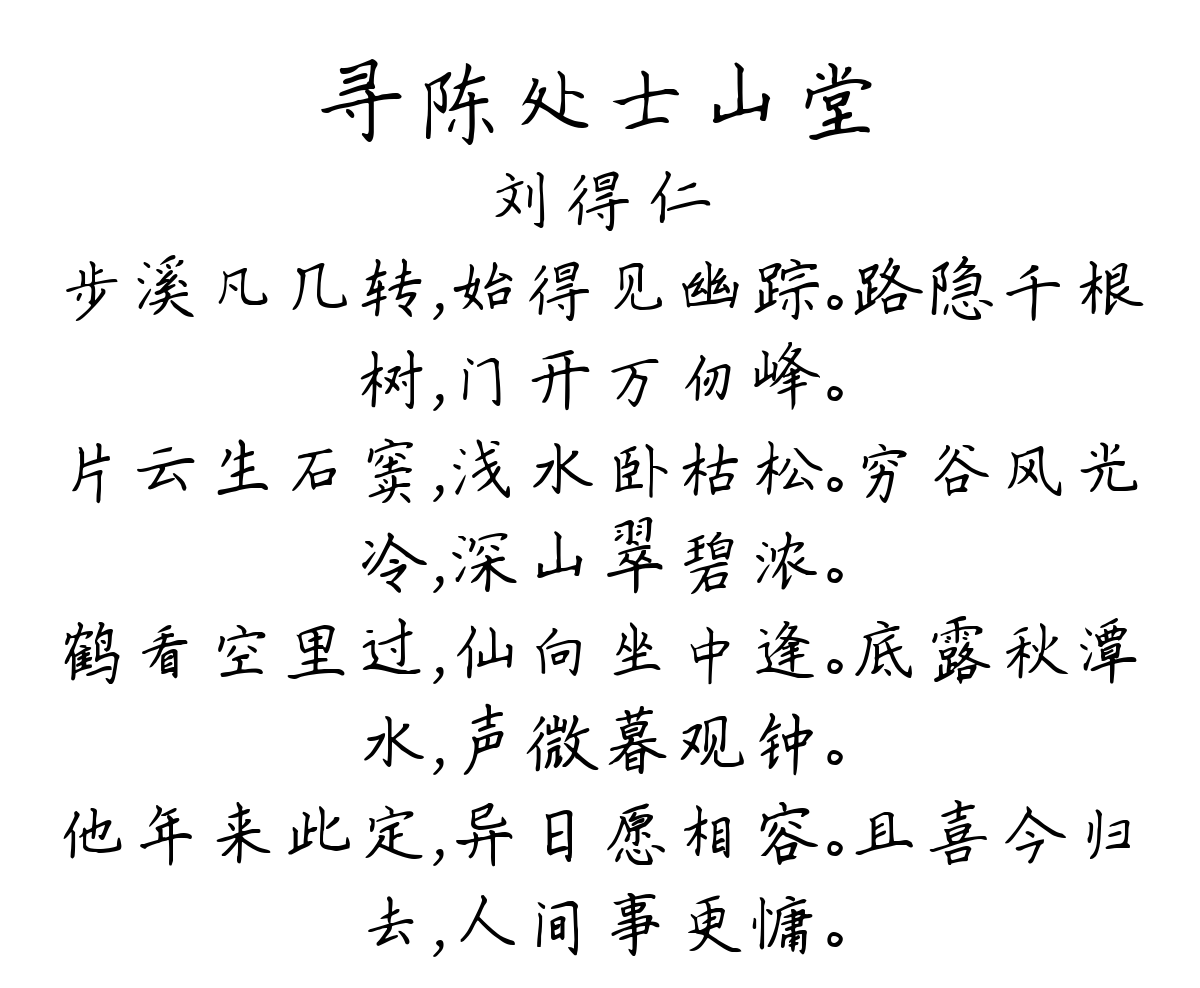 寻陈处士山堂
刘得仁
步溪凡几转,始得见幽踪。路隐千根
树,门开万仞峰。
片云生石窦,浅水卧枯松。穷谷风光
冷,深山翠碧浓。
鹤看空里过,仙向坐中逢。底露秋潭
水,声微暮观钟。
他年来此定,异日愿相容。且喜今归
去,人间事更慵。